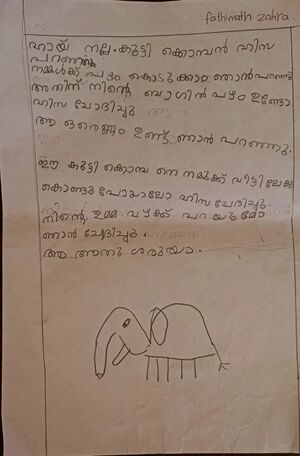 fathimath zahra.
ഹായ് നല്ല കുട്ടി ക്കൊമ്പൻ ഹിസ
പറഞ്ഞു
നമ്മൾക്ക് പഴം കൊടുക്കാം ഞാൻ പറഞ്ഞു
അതിന് നിന്റെ ബാഗിൽ പഴം ഉണ്ടോ
ഹിസ ചോദിച്ചു
ആ ഒരെണ്ണം ഉണ്ട് ഞാൻ പറഞ്ഞു.
ഈ കുട്ടി ക്കൊമ്പ നെ നമുക്ക് വീട്ടിലേക്ക്
കൊണ്ടു പോയാലോ ഹിസ ചോദിച്ചു.
നിന്റെ ഉമ്മ വഴക്ക് പറ യുമോ
ഞാൻ ചോദിച്ചു
ആ അതു ശരുയാ.